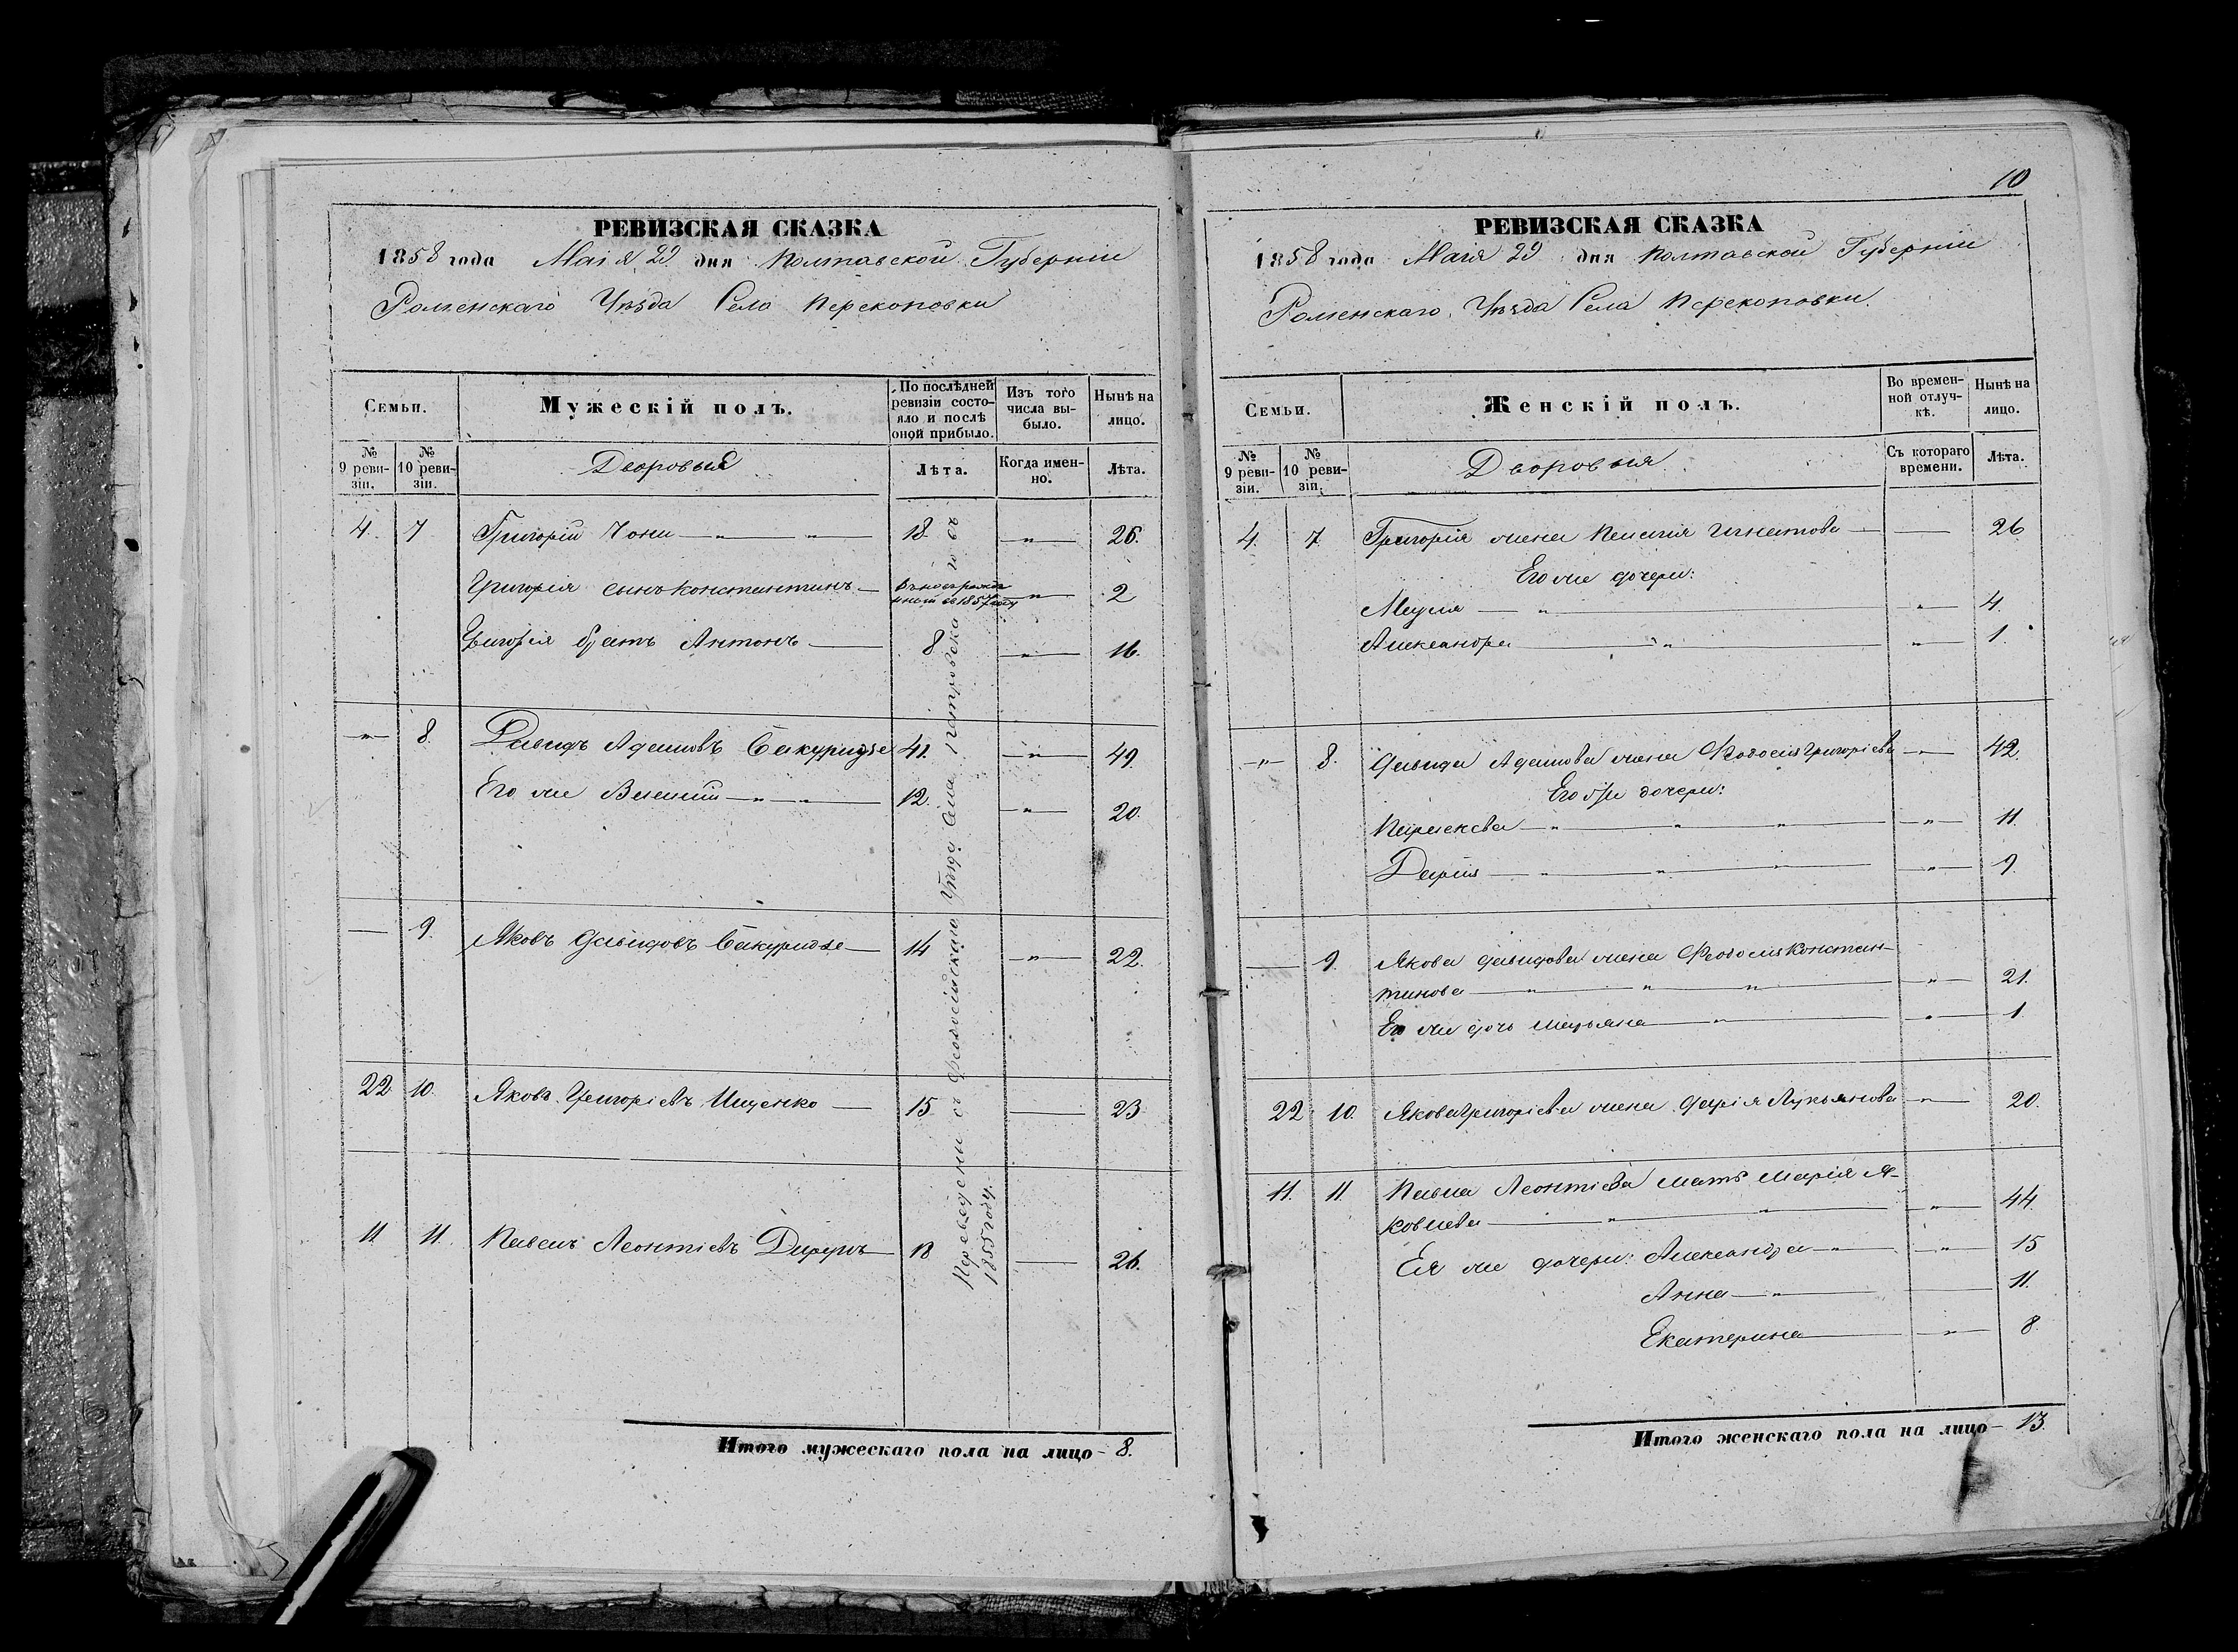 РЕВИЗСКАЯ СКАЗКА
1858 года Маія 29 дня Полтавской Губерніи
Роменскаго Уѣзда Села Перекоповки
Семьи.
Мужескій полъ.
По послѣдней ревизіи состояло и послѣ оной прибыло.
Изъ того числа выбыло.
Нынѣ на лицо.
№ 9 ревизіи.
№ 10 ревизіи.
Дворовыя
Лѣта.
Когда именно.
Лѣта.
4. 7 Григорій 18. — " — 26.
Григорія сынъ Константинъ — " — 2
Григорія братъ Антонъ 8 — " — 16.
— " — 8. Давидъ Адамовъ Бакуридзе 41. — " — 49.
Его же Василій — " — " — 12. — " — 20.
— 9. Яковъ Давидовъ Бакуридзе — 14 — " — 22.
22 10. Яковъ Григоріевъ Ищенко — 15. — 23
11. 11. Павелъ Леонтіевъ — 18 — 26.
Переведены съ Феодосійскаго Уѣзда Села Петровска
1855 году.
Итого мужескаго пола на лицо – 8.
10
РЕВИЗСКАЯ СКАЗКА
1858 года Маія 29 дня Полтавской Губерніи
Роменскаго Уѣзда Села Перекоповки.
Семьи.
Женскій полъ.
Во временной отлучкѣ.
Нынѣ на лицо.
№ 9 ревизіи.
№ 10 ревизіи.
Дворовыя
Съ котораго времени.
Лѣта.
4. 7. Григорія жена Пелагія Игнатова — 26
Его же дочери:
— " — " — 4.
Александра — " — " — 1.
— " — 8. Давида Адамова жена Феодосія Григоріева — " — 42.
Его же дочери:
Параскева — " — " — " — " — 11.
Дарія — " — " — " — " — 9.
— 9. Якова Давидова жена Феодосія Констан-
тинова — " — " — " — " — 21.
Его же дочь Марьяна — " — " — 1
22 10. Якова Григоріева жена Дарія Лукьянова — " — 20.
11. 11. Павла Леонтіева мать Марія Я-
ковлева — " — " — " — 44.
Ея же дочери: Александра — " — " — 15
Анна — " — 11.
Екатерина — " — 8.
Итого женскаго пола на лицо – 13.